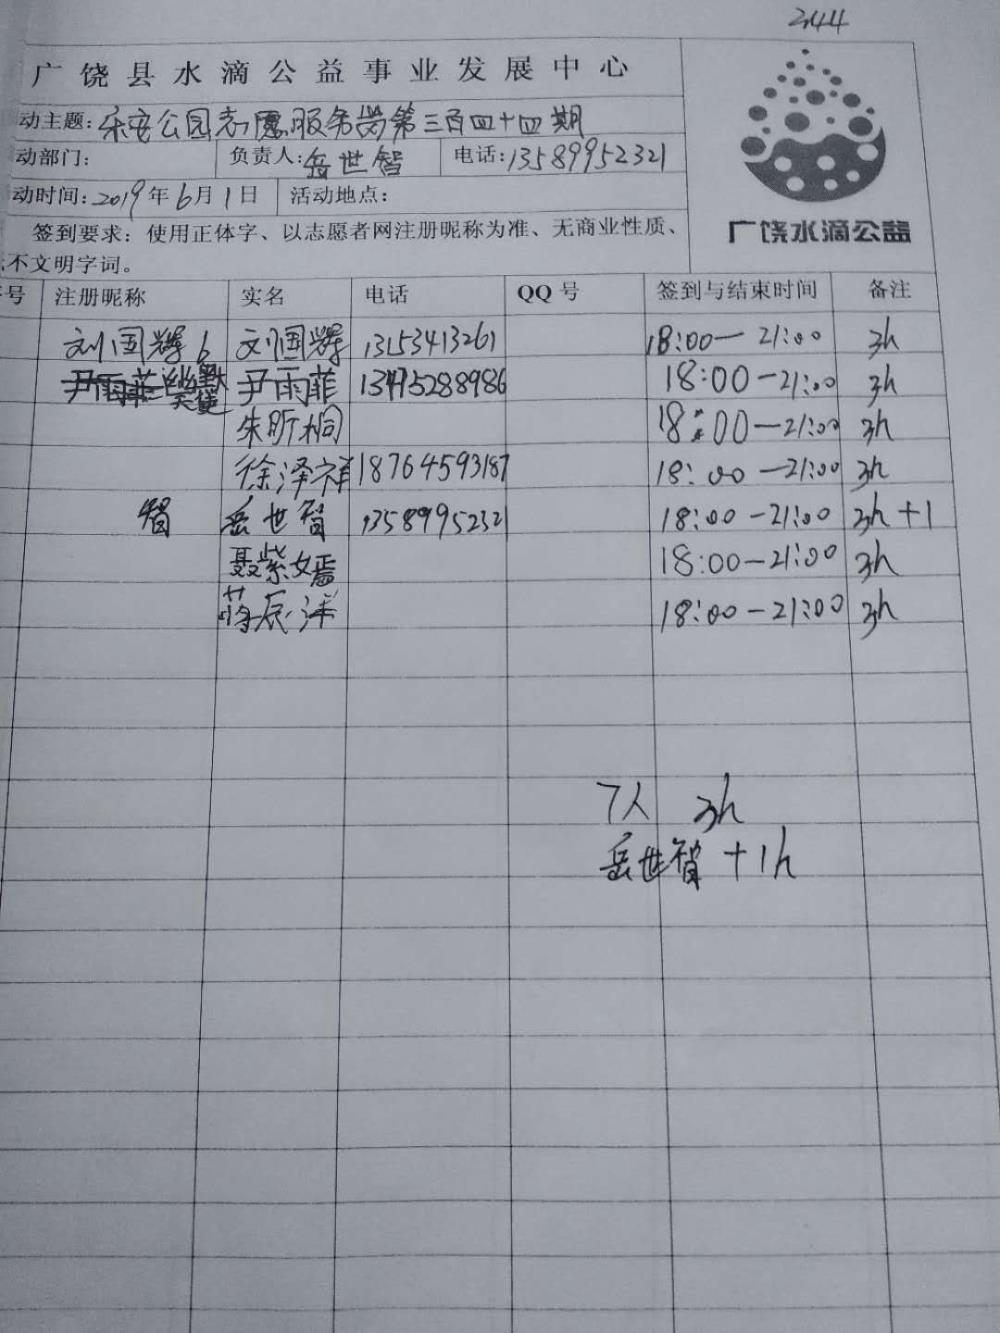 344
广饶县水滴公益事业发展中心
动主题: 乐安公园志愿服务岗第三百四十四期
动部门: 负责人: 岳世智 电话: 13589952321
动时间: 2019年6月1日 活动地点:
签到要求: 使用正体字、以志愿者网注册昵称为准、无商业性质、
不文明字词。
广饶水滴公益
号 注册昵称 实名 电话 QQ号 签到与结束时间 备注
刘国辉6 刘国辉 13153413261 18:00—21:00 3h
尹雨菲 幽默天使 尹雨菲 13475288986 18:00—21:00 3h
朱昕桐 18:00—21:00 3h
徐泽祥 18764593187 18:00—21:00 3h
智 岳世智 13589952321 18:00—21:00 3h+1
聂紫嫣 18:00—21:00 3h
蒋辰洋 18:00—21:00 3h
7人 3h
岳世智 +1h